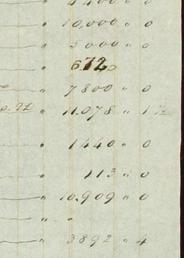 " 4400 " 0
" 10,000 " 0
" 3000 " 0
" 672
" 7800 " 0
" 11.078 " 1 ½
" 1440 " 0
" 113 " 0
" 10.909 " 0
" "
" 3892 " 4